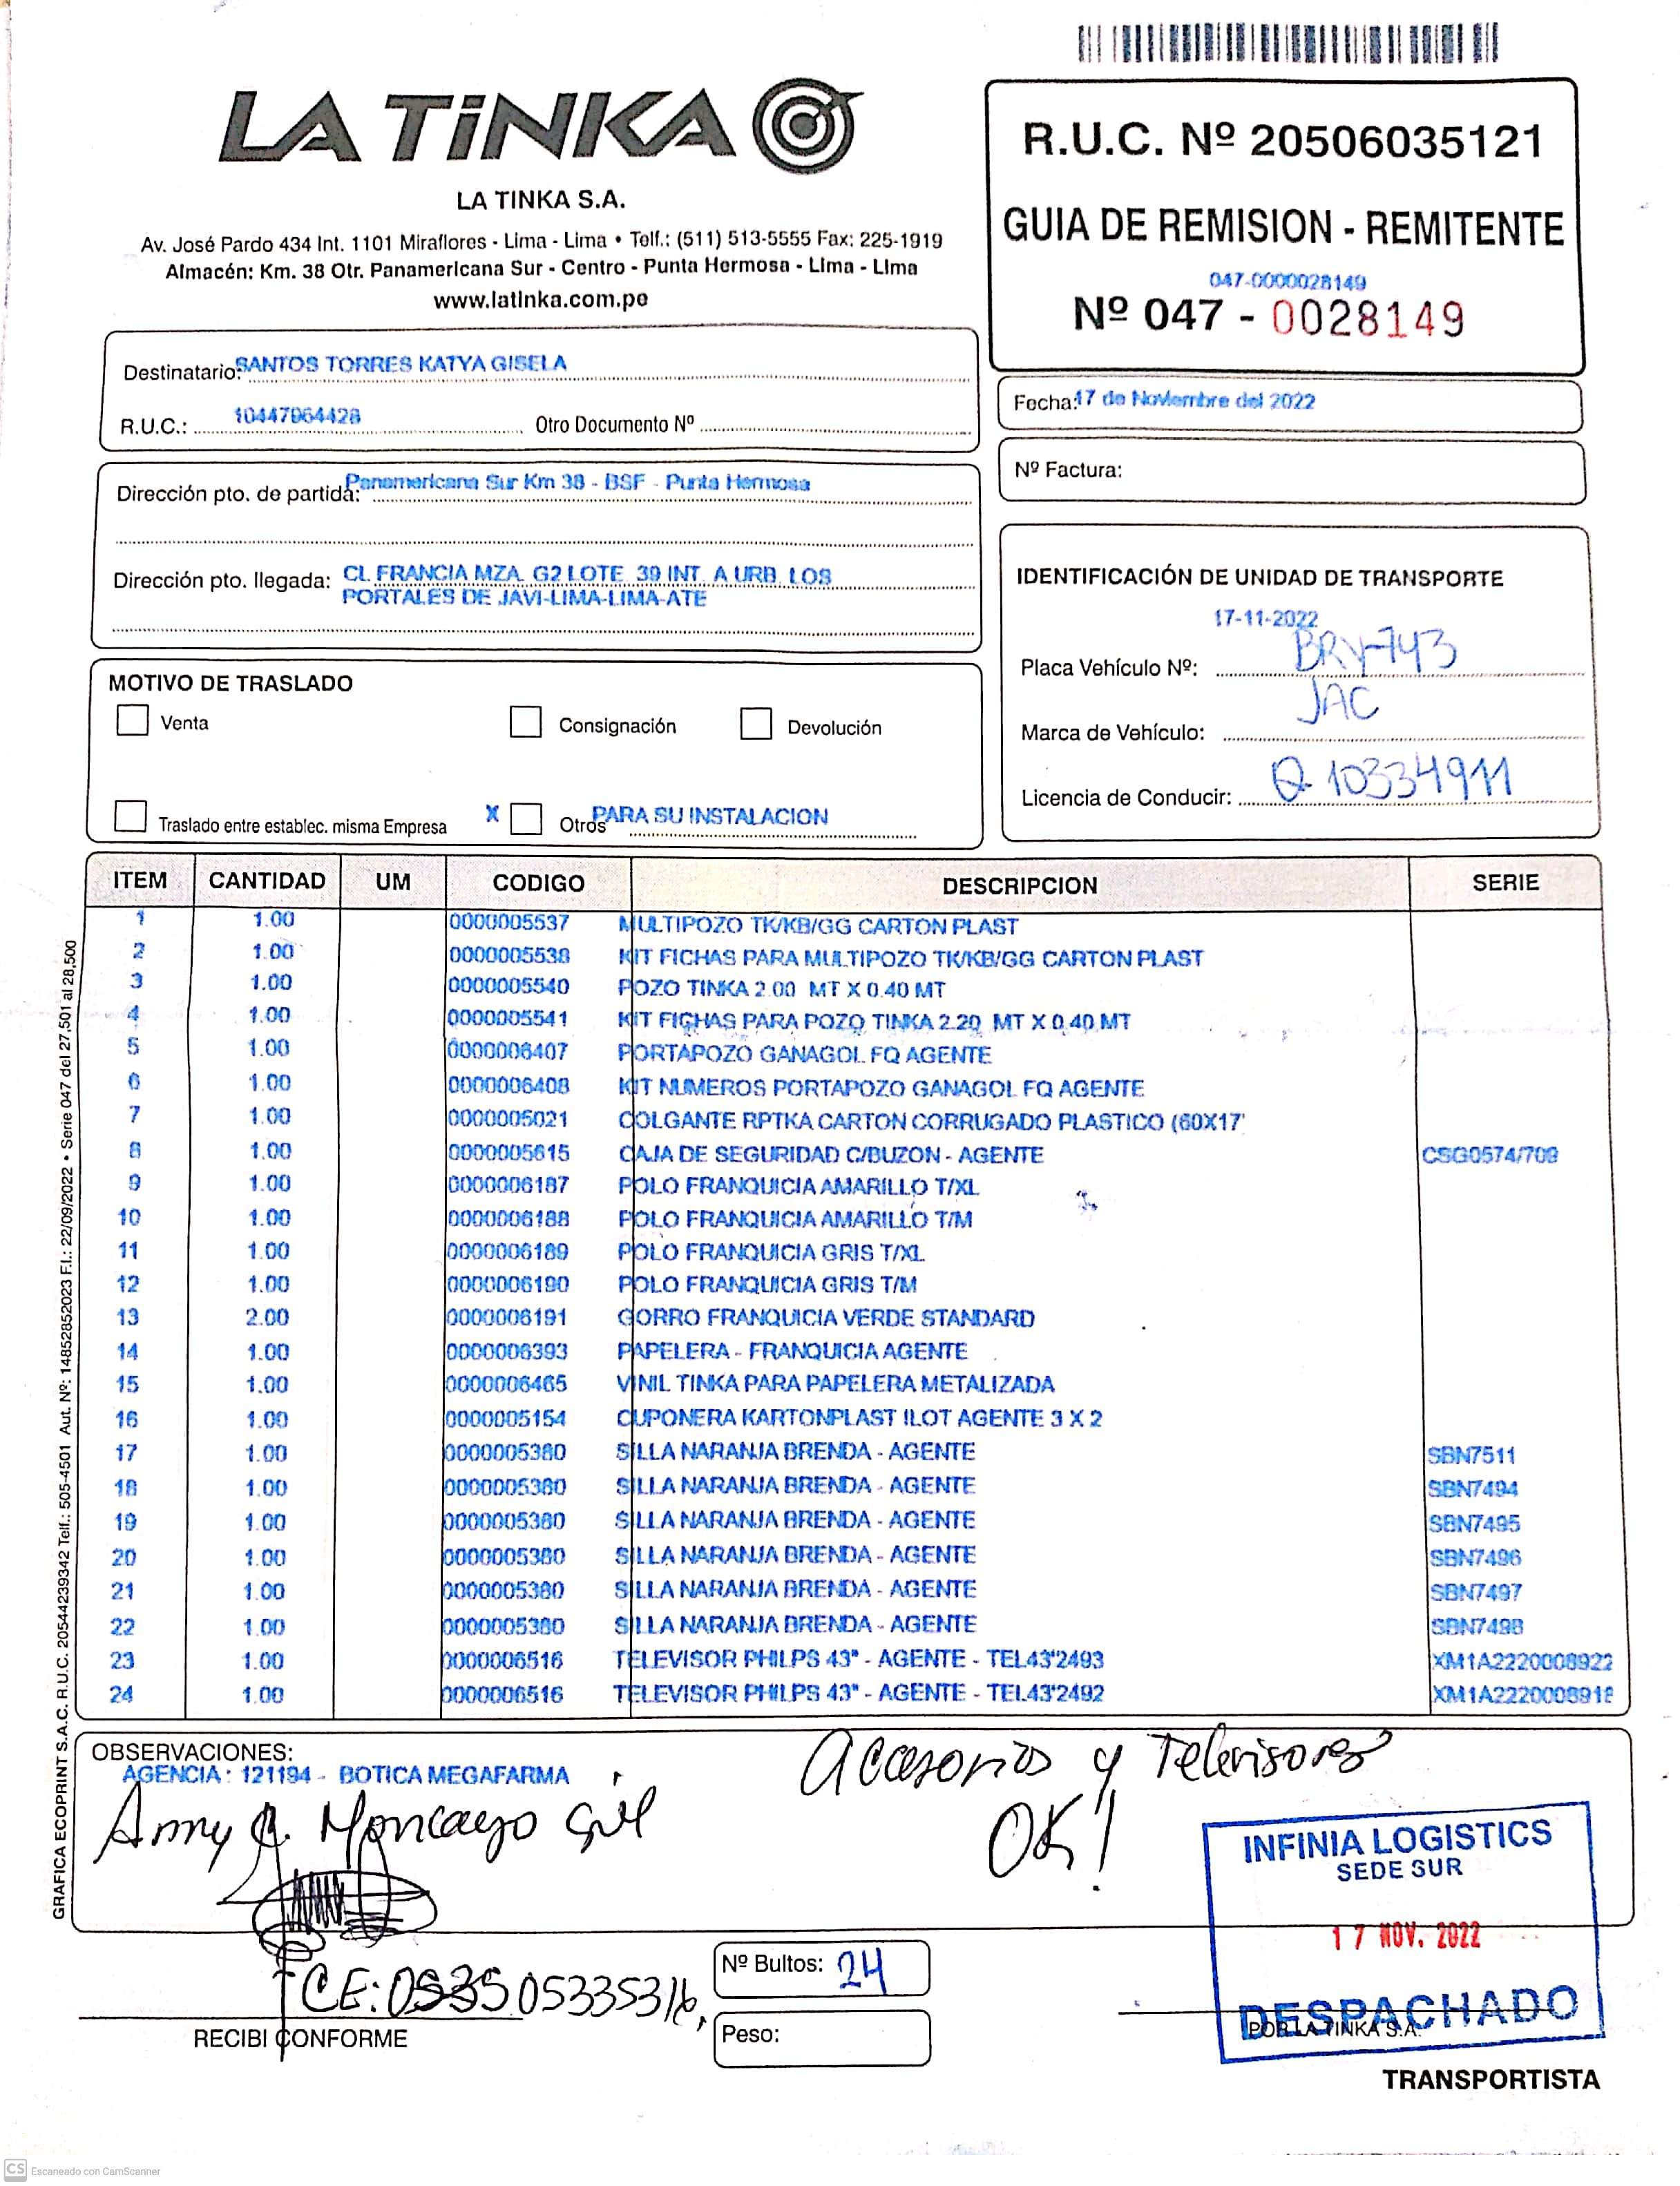 LA TiNKA
LA TINKA S.A.
Av. José Pardo 434 Int. 1101 Miraflores - Lima - Lima • Telf.: (511) 513-5555 Fax: 225-1919
Almacén: Km. 38 Otr. Panamericana Sur - Centro - Punta Hermosa - Lima - Lima
www.latinka.com.pe
R.U.C. Nº 20506035121
GUIA DE REMISION - REMITENTE
047-0000028149
Nº 047 - 0028149
Destinatario: SANTOS TORRES KATYA GISELA
R.U.C.: 10447964428 Otro Documento Nº
Fecha: 17 de Noviembre del 2022
Nº Factura:
Dirección pto. de partida: Panamericana Sur Km 38 - BSF - Punta Hermosa
Dirección pto. llegada: CL FRANCIA MZA. G2 LOTE. 39 INT. A URB. LOS
PORTALES DE JAVI-LIMA-LIMA-ATE
IDENTIFICACIÓN DE UNIDAD DE TRANSPORTE
17-11-2022
Placa Vehículo Nº: BRV-743
Marca de Vehículo: JAC
Licencia de Conducir: Q 10334911
MOTIVO DE TRASLADO
Venta Consignación Devolución
Traslado entre establec. misma Empresa X Otros PARA SU INSTALACION
ITEM CANTIDAD UM CODIGO DESCRIPCION SERIE
1 1.00 0000005537 MULTIPOZO TK/KB/GG CARTON PLAST
2 1.00 0000005538 KIT FICHAS PARA MULTIPOZO TK/KB/GG CARTON PLAST
3 1.00 0000005540 POZO TINKA 2.00 MT X 0.40 MT
4 1.00 0000005541 KIT FICHAS PARA POZO TINKA 2.20 MT X 0.40 MT
5 1.00 0000006407 PORTAPOZO GANAGOL FQ AGENTE
6 1.00 0000006408 KIT NUMEROS PORTAPOZO GANAGOL FQ AGENTE
7 1.00 0000005021 COLGANTE RPTKA CARTON CORRUGADO PLASTICO (60X17'
8 1.00 0000005615 CAJA DE SEGURIDAD C/BUZON - AGENTE CSG0574/709
9 1.00 0000006187 POLO FRANQUICIA AMARILLO T/XL
10 1.00 0000006188 POLO FRANQUICIA AMARILLO T/M
11 1.00 0000006189 POLO FRANQUICIA GRIS T/XL
12 1.00 0000006190 POLO FRANQUICIA GRIS T/M
13 2.00 0000006191 GORRO FRANQUICIA VERDE STANDARD
14 1.00 0000006393 PAPELERA - FRANQUICIA AGENTE
15 1.00 0000006465 VINIL TINKA PARA PAPELERA METALIZADA
16 1.00 0000005154 CUPONERA KARTONPLAST ILOT AGENTE 3 X 2
17 1.00 0000005380 SILLA NARANJA BRENDA - AGENTE SBN7511
18 1.00 0000005380 SILLA NARANJA BRENDA - AGENTE SBN7494
19 1.00 0000005380 SILLA NARANJA BRENDA - AGENTE SBN7495
20 1.00 0000005380 SILLA NARANJA BRENDA - AGENTE SBN7496
21 1.00 0000005380 SILLA NARANJA BRENDA - AGENTE SBN7497
22 1.00 0000005380 SILLA NARANJA BRENDA - AGENTE SBN7498
23 1.00 0000006516 TELEVISOR PHILPS 43" - AGENTE - TEL43'2493 XM1A2220008922
24 1.00 0000006516 TELEVISOR PHILPS 43" - AGENTE - TEL43'2492 XM1A2220008918
GRAFICA ECOPRINT S.A.C. R.U.C. 20544239342 Telf.: 505-4501 Aut. Nº: 14852852023 F.I.: 22/09/2022 • Serie 047 del 27,501 al 28,500
OBSERVACIONES:
AGENCIA: 121194 - BOTICA MEGAFARMA
Accesorios y Televisores
OK!
Anny J. Moncayo Gil
INFINIA LOGISTICS
SEDE SUR
17 NOV. 2022
DESPACHADO
CE: 053505335316,
RECIBI CONFORME
Nº Bultos: 24
Peso:
POR LA TINKA S.A.
TRANSPORTISTA
CS Escaneado con CamScanner